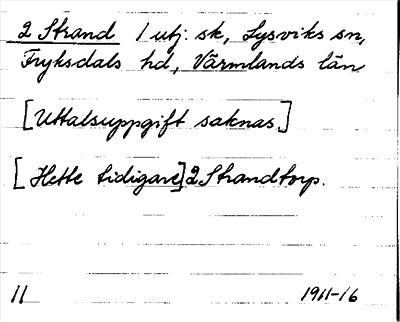 2 Strand 1 utj. sk, Lysviks sn,
Fryksdals hd, Värmlands län
[Uttalsuppgift saknas.]
[Hette tidigare] 2 Strandtorp.
11 1911-16